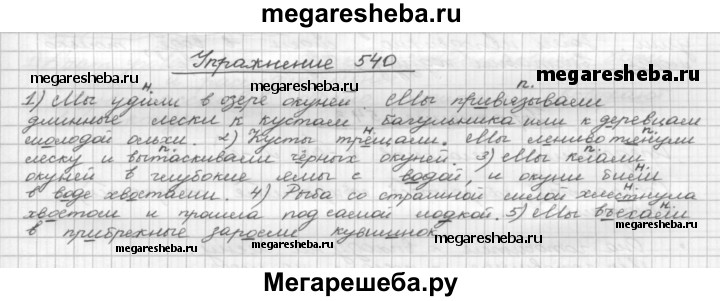 megaresheba.ru
Упражнение 540
megaresheba.ru megaresheba.ru megaresheba.ru
н. п.
1) Мы удили в озере окуней. Мы привязывали
длинные лески к кустам багульника или к деревцам
н. п.
молодой ольхи. 2) Кусты трещали. Мы лениво тянули
п. п.
леску и вытаскивали чёрных окуней. 3) Мы клали
н.
окуней в глубокие ямы с водой, и окуни били
п.
в воде хвостами. 4) Рыба со страшной силой хлестнула
н.
хвостом и прошла под самой лодкой. 5) Мы въехали
в прибрежные заросли кувшинок
megaresheba.ru megaresheba.ru megaresheba.ru
Мегарешеба.ру